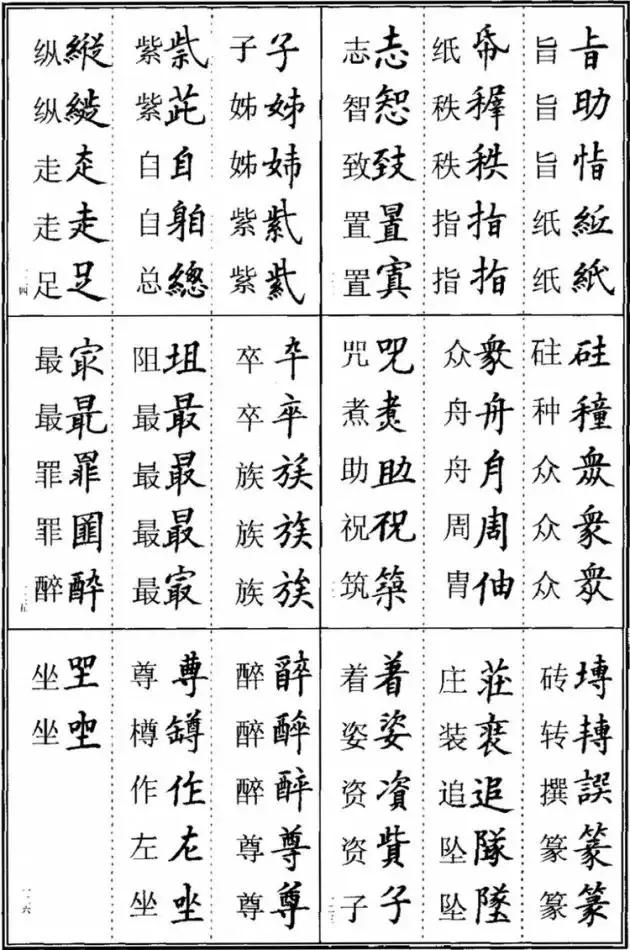 旨㫖 旨助 旨恉 纸 纸紙
纸帋 秩 秩秩 指指 指指
志志 智 致致 置 置寘
砫硅 种穜 众眾 众衆 众衆
众衆 舟舟 舟月 周周 胄伷
咒咒 煮煮 助助 祝祝 筑築
砖塼 转轉 撰譔 篆篆 篆篆
庄莊 装 追追 坠隊 坠墜
着着 姿姿 资資 资貲 子子
子子 姊姊 姊姉 紫紫 紫紫
紫 紫茈 自自 自 总總
纵縱 纵 走 走走 足足
卒卆 卒卒 族族 族族 族族
阻坥 最最 最最 最最 最㝡
最㝡 最最 罪罪 罪 醉酔
醉 醉醉 醉酔 尊尊 尊尊
尊尊 樽罇 作作 左左 坐坐
坐 坐坐
一三四
一三五
一三六